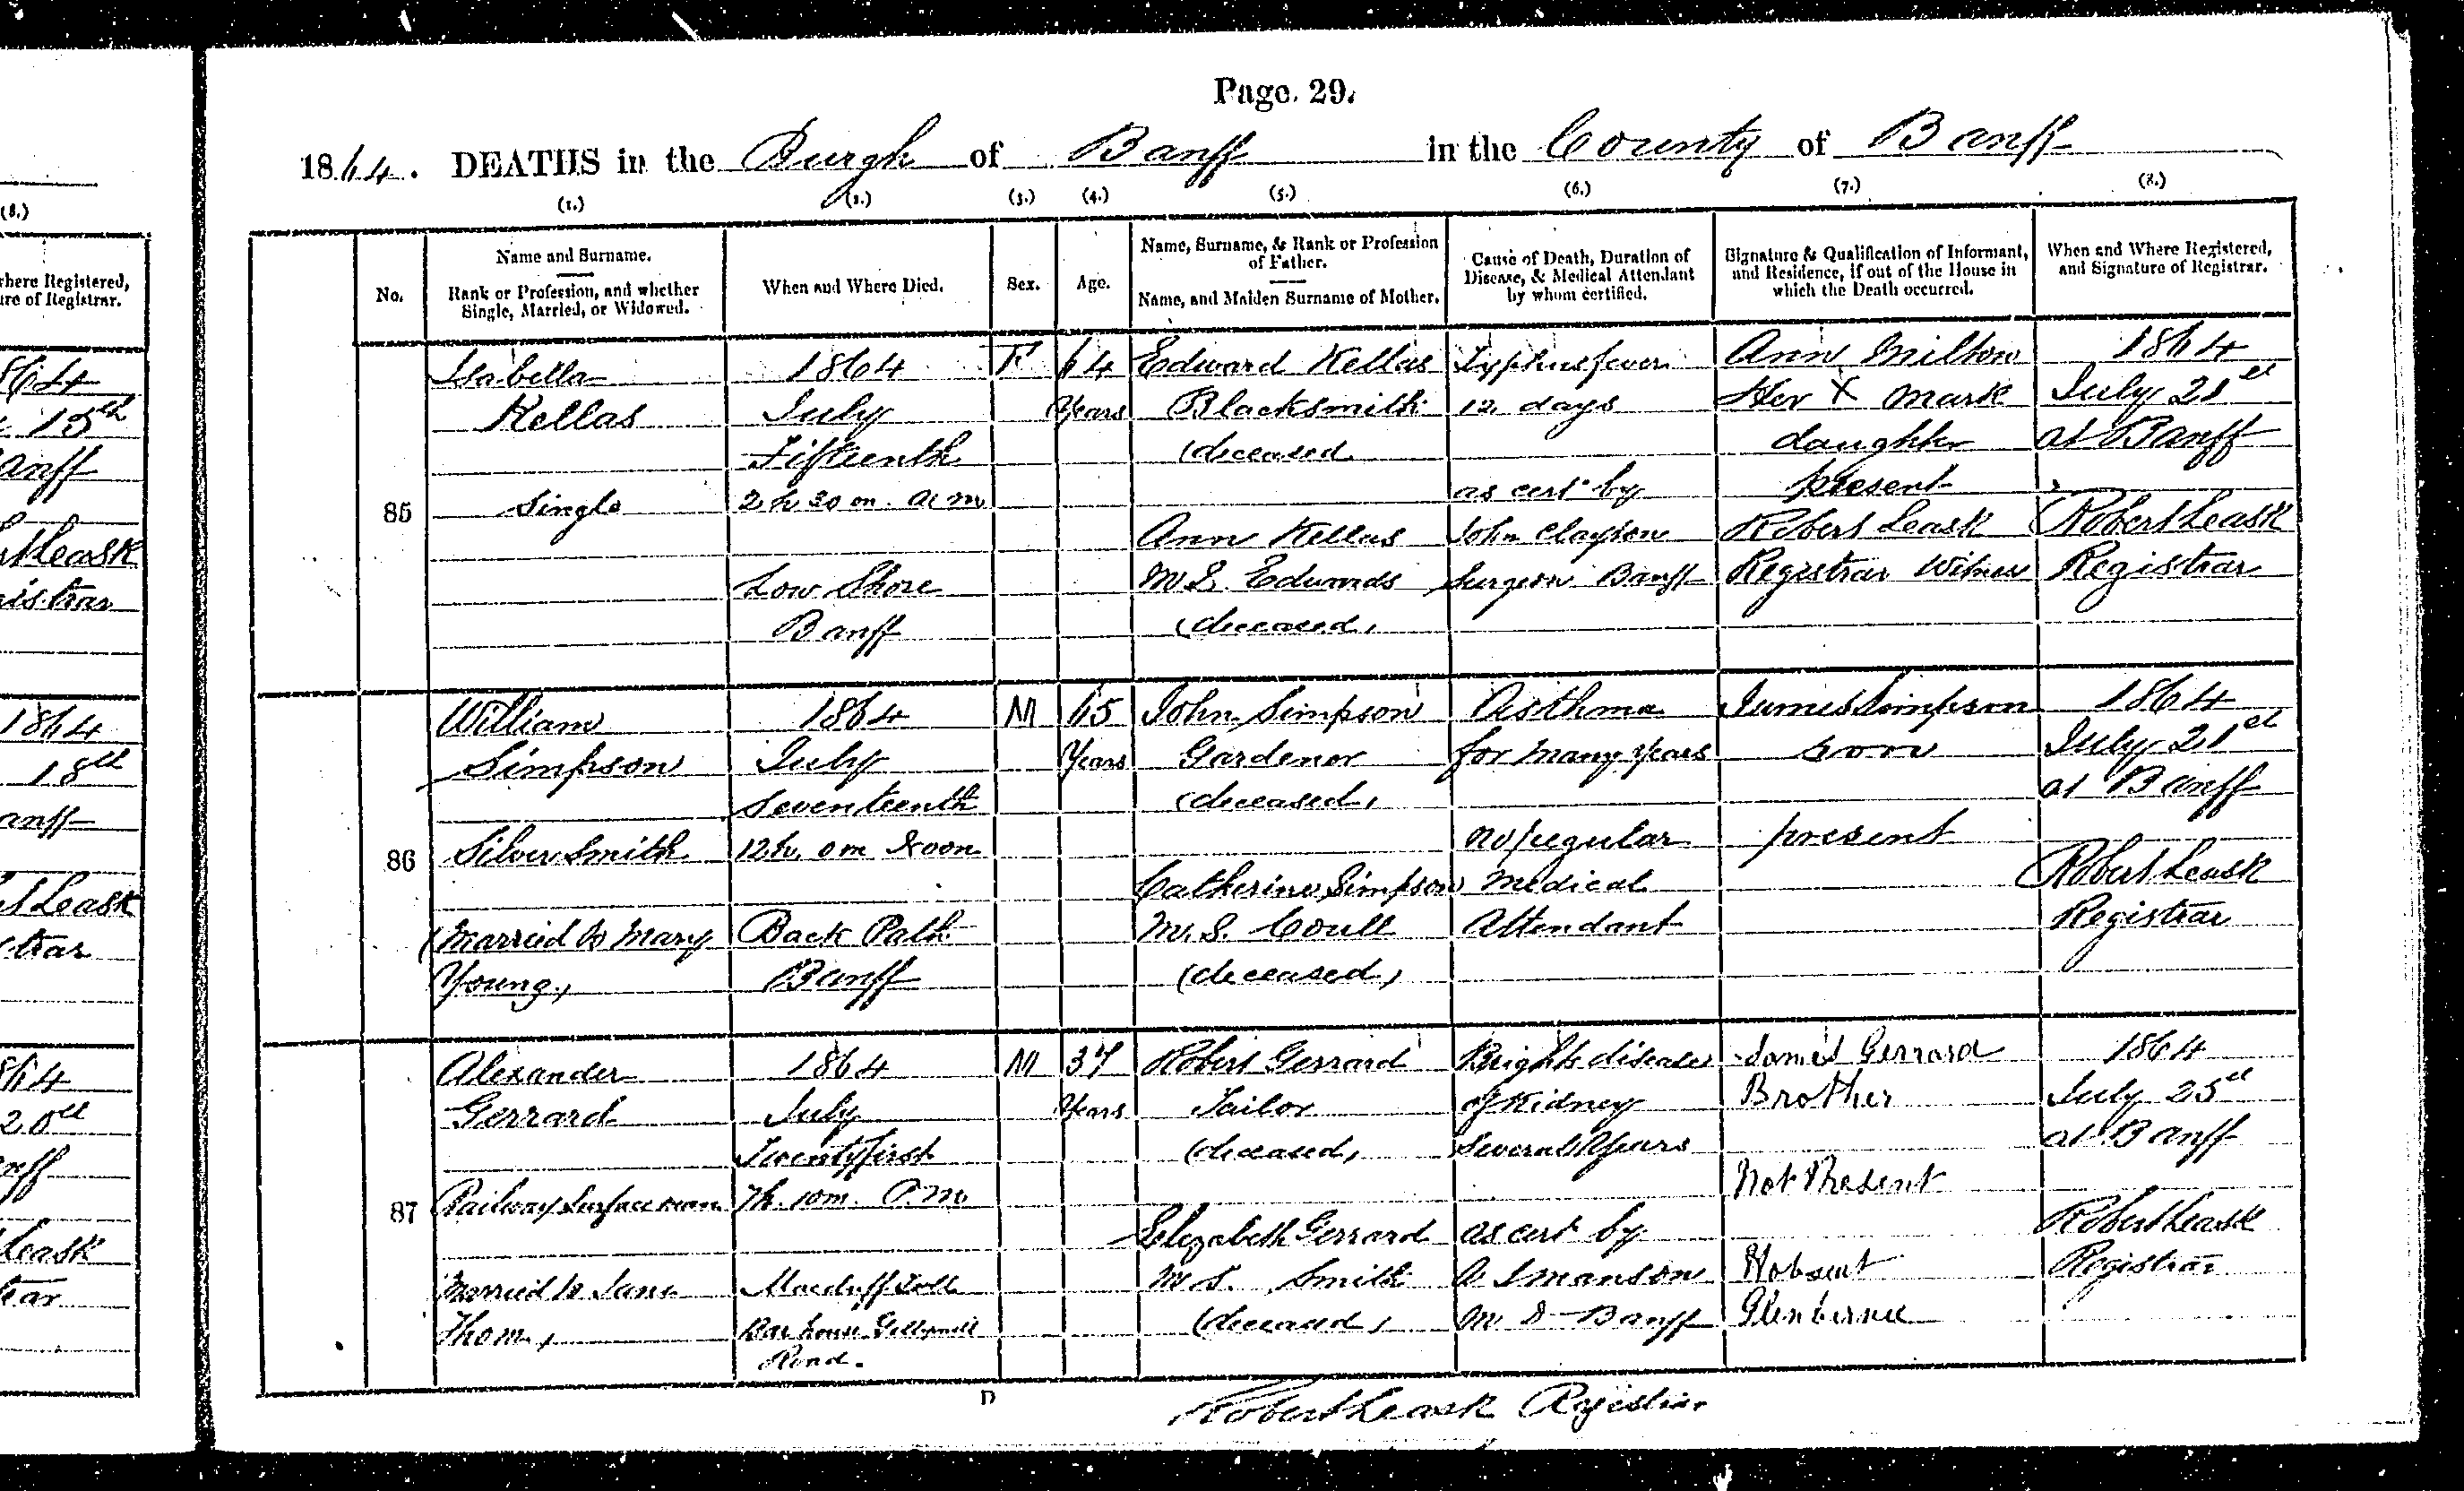 Page. 29.
1864. DEATHS in the Burgh of Banff in the County of Banff
(1.) (2.) (3.) (4.) (5.) (6.) (7.) (8.)
No.
Name and Surname.
Rank or Profession, and whether
Single, Married, or Widowed.
When and Where Died.
Sex.
Age.
Name, Surname, & Rank or Profession
of Father.
Name, and Maiden Surname of Mother.
Cause of Death, Duration of
Disease, & Medical Attendant
by whom certified.
Signature & Qualification of Informant,
and Residence, if out of the House in
which the Death occurred.
When and Where Registered,
and Signature of Registrar.
85
Isabella
Kellas
Single
1864
July
Fifteenth
2 h 30 m. A M
Low Shore
Banff
F
64
Years
Edward Kellas
Blacksmith
(deceased
Ann Kellas
M.S. Edwards
(deceased)
Typhus fever
12 days
as cert. by
John Clayson
Surgeon Banff
Ann Milton
Her X Mark
daughter
present
Robert Leask
Registrar Witness
1864
July 21st
at Banff
Robert Leask
Registrar
86
William
Simpson
Silver Smith
(Married to Mary
Young)
1864
July
Seventeenth
12 h. 0 m Noon
Back Path
Banff
M
65
Years
John Simpson
Gardener
(deceased)
Catherine Simpson
M.S. Coull
(deceased)
Asthma
for many years
no regular
Medical
Attendant
James Simpson
son
present
1864
July 21st
at Banff
Robert Leask
Registrar
87
Alexander
Gerrard
Railway Surfaceman
Married to Jane
Thom)
1864
July
Twenty first
7h. 10m. P.M
Macduff Toll
Bar house Gellymill
Road.
M
37
Years
Robert Gerrard
Tailor
(deceased)
Elizabeth Gerrard
M S. Smith
(deceased)
Brights disease
of Kidney
Several Years
as cert by
A Manson
M D Banff
James Gerrard
Brother
Not Present
1864
July 25th
at Banff
Robert Leask
Registrar
D
Robert Leask Registrar
(8.)
where Registered,
ure of Registrar.